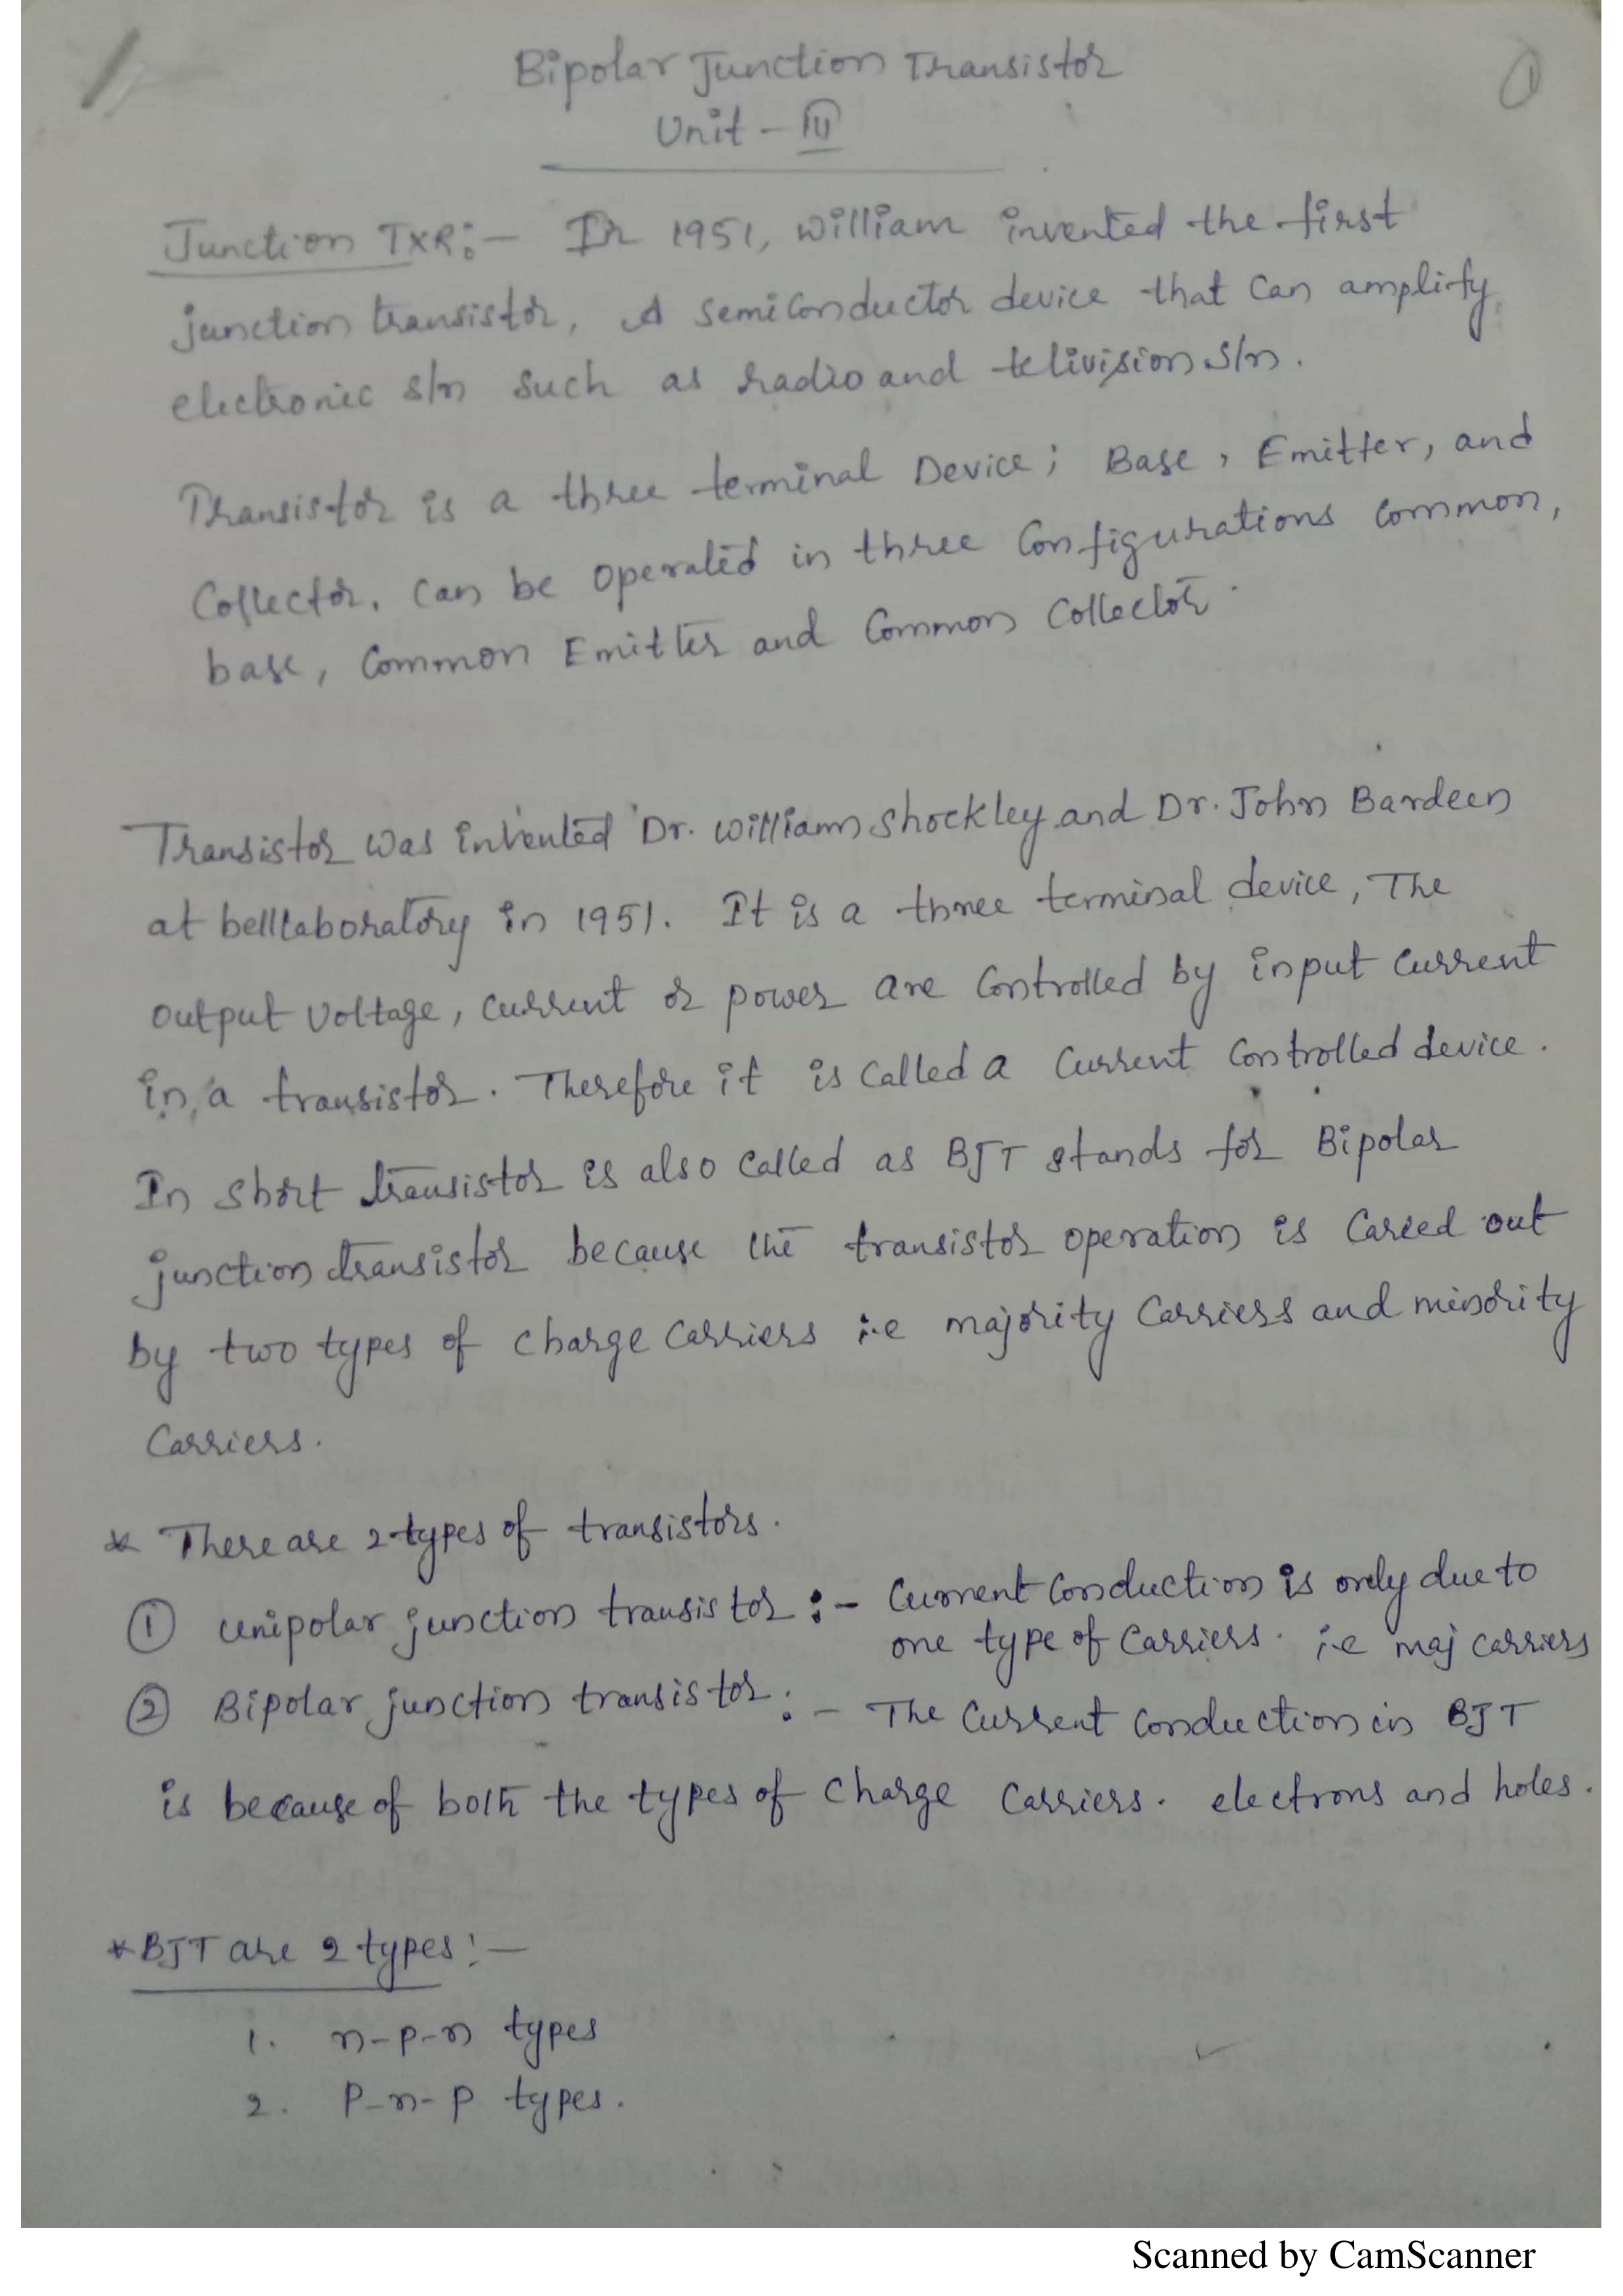 Bipolar Junction Transistor
①
Unit - III
Junction TXR:- In 1951, William invented the first
junction transistor, A semiconductor device that can amplify
electronic s/n such as radio and telivision s/n.
Transistor is a three terminal Device; Base, Emitter, and
Collector. Can be operated in three Configurations Common,
base, Common Emitter and Common Collector.
Transistor was invented Dr. William Shockley and Dr. John Bardeen
at bell laboratory in 1951. It is a three terminal device, The
output voltage, current or power are Controlled by input Current
in a transistor. Therefore it is called a Current Controlled device.
In short transistor is also called as BJT stands for Bipolar
junction transistor because the transistor operation is Caried out
by two types of charge Carriers i.e majority Carriers and minority
Carriers.
* There are 2 types of transistors.
① Unipolar junction transistor :- Current Conduction is only due to
one type of Carriers. i.e maj carriers
② Bipolar junction transistor :- The Current Conduction in BJT
is because of both the types of Charge Carriers. electrons and holes.
* BJT are 2 types:-
1. n-p-n types
2. P-n-P types.
Scanned by CamScanner